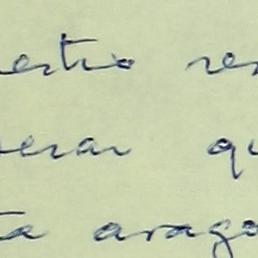 estro res
erar qu
ta arago